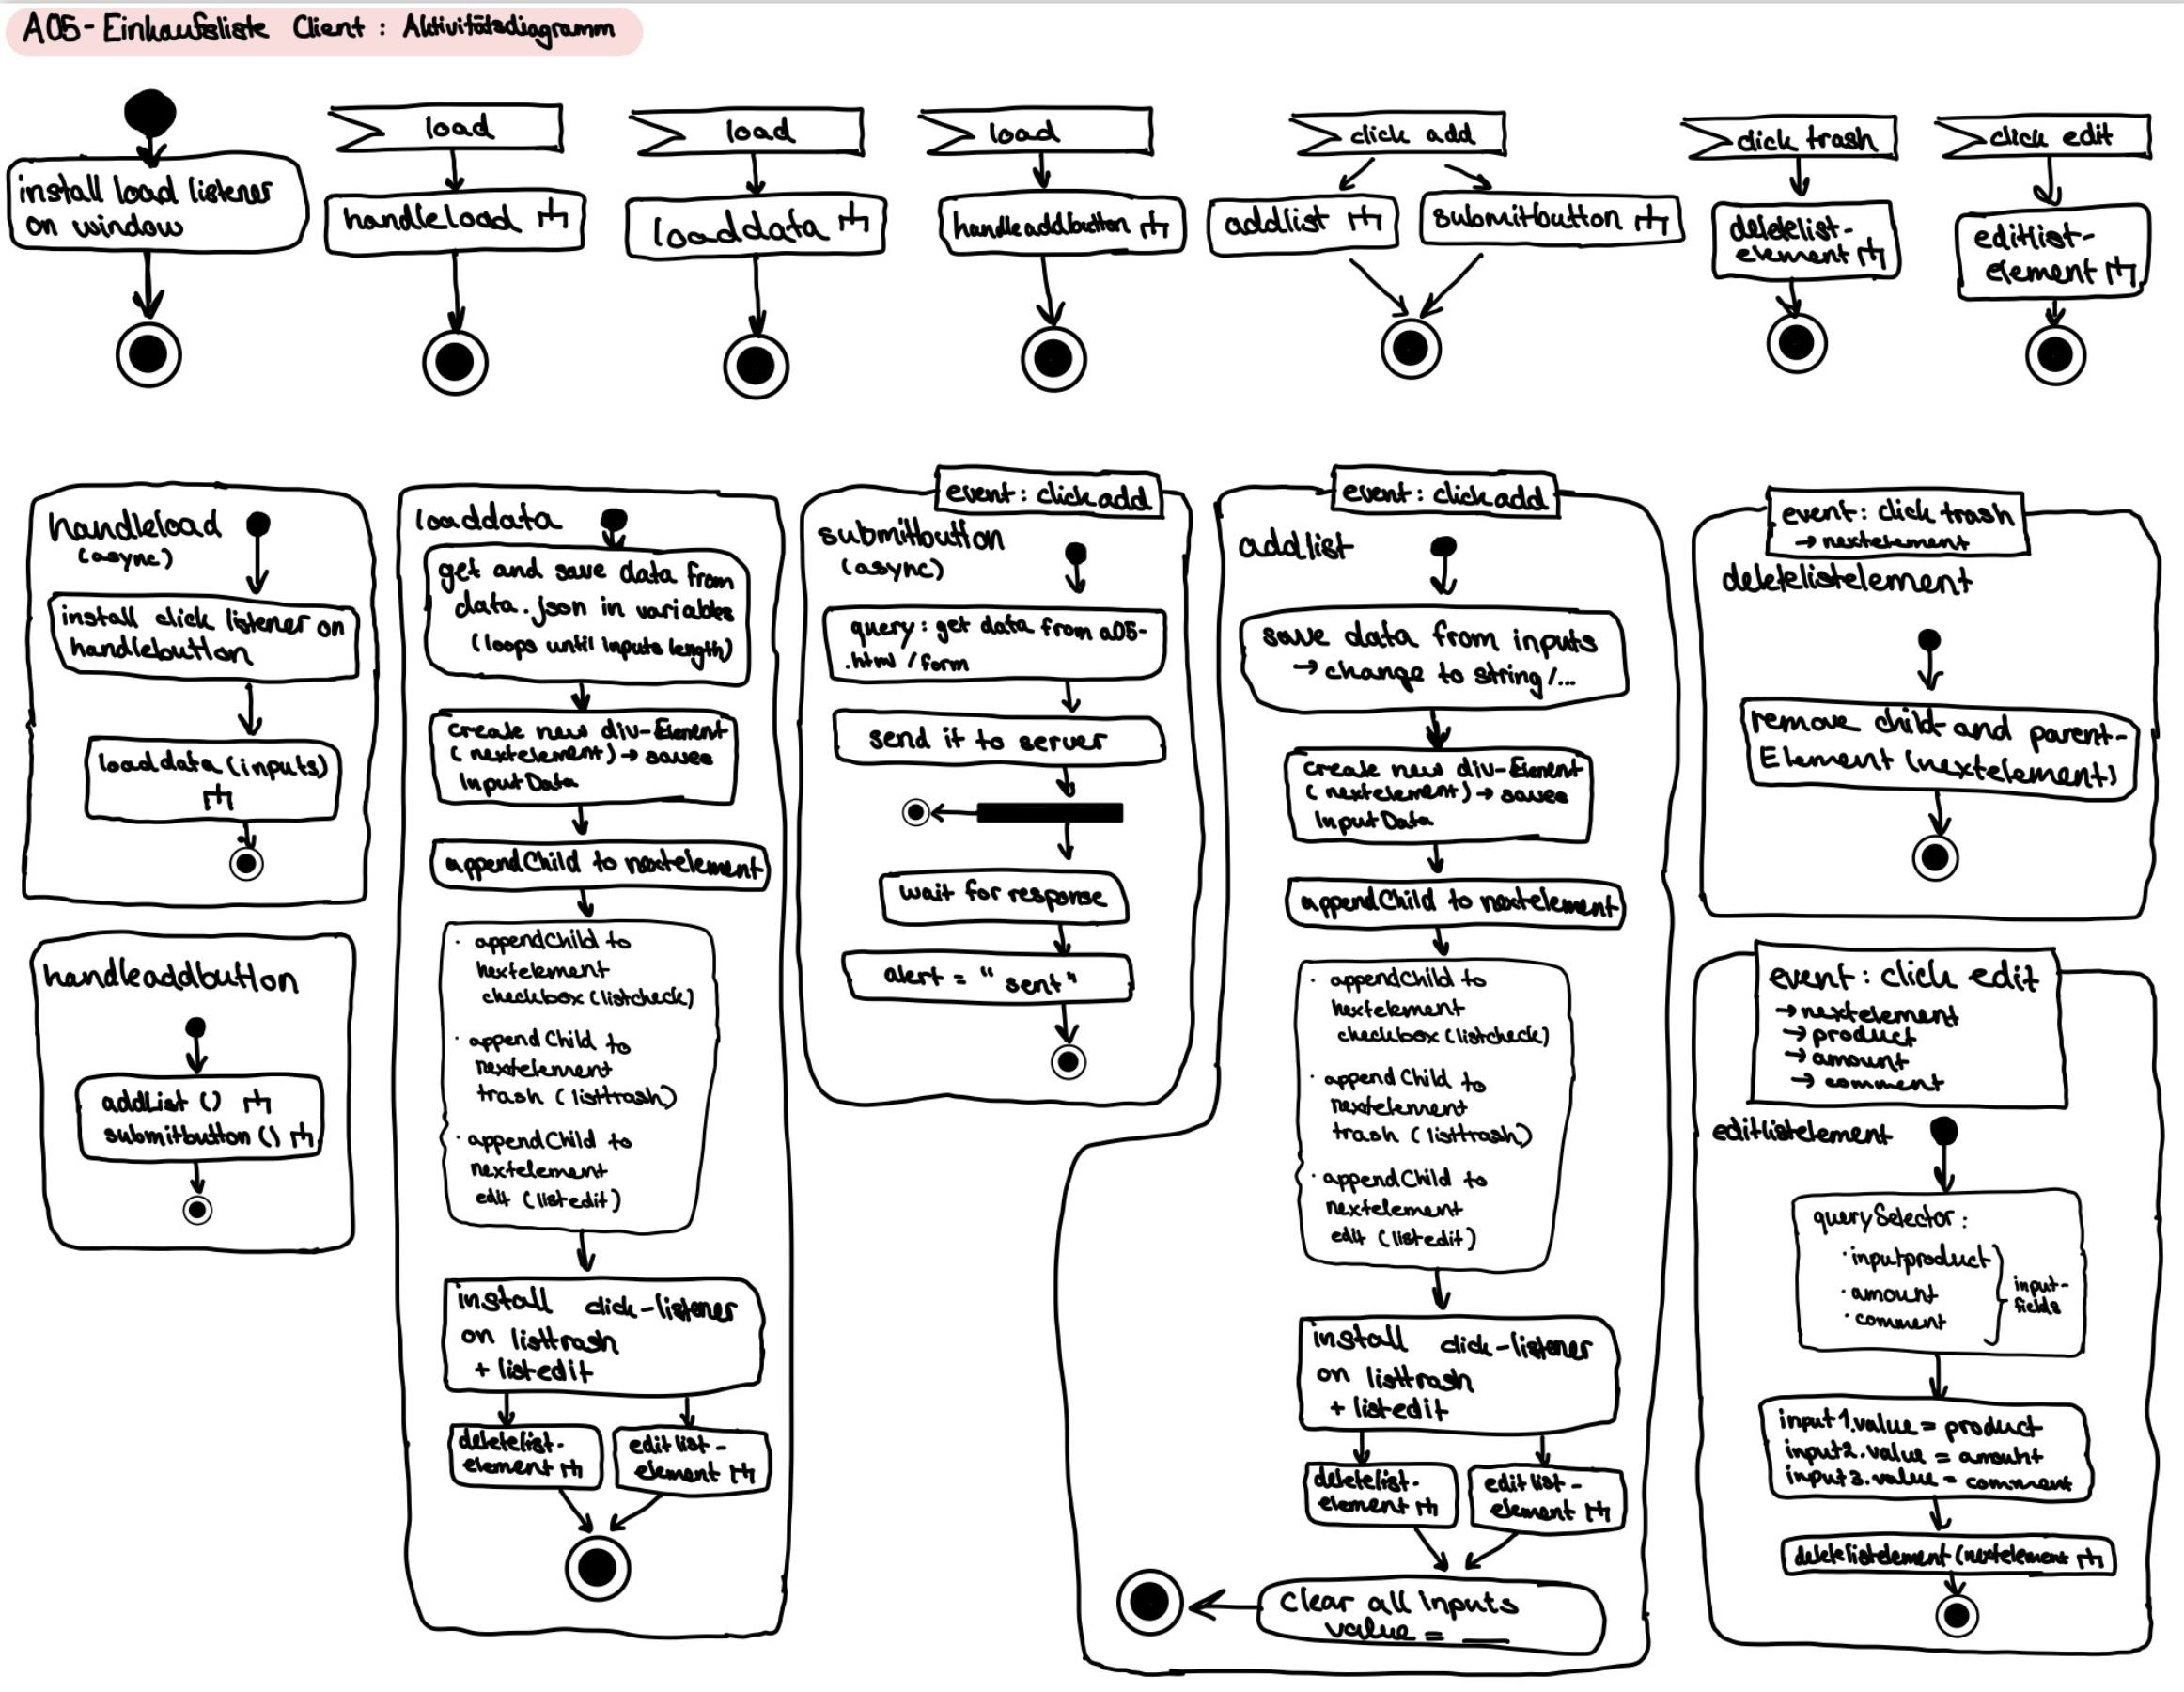 A05-Einkaufsliste Client : Aktivitätsdiagramm
install load listener
on window
load
handleload
load
loaddata
load
handleaddbutton
click add
addlist
submitbutton
click trash
deletelist-
element
click edit
editlist-
element
handleload
(async)
install click listener on
handlebutton
loaddata (inputs)
handleaddbutton
addList ()
submitbutton ()
loaddata
get and save data from
data.json in variables
(loops until inputs length)
create new div-Element
(nextelement) → saves
InputData
appendChild to nextelement
· appendChild to
nextelement
checkbox (listcheck)
· appendChild to
nextelement
trash (listtrash)
· appendChild to
nextelement
edit (listedit)
install click-listener
on listtrash
+ listedit
deletelist-
element
editlist-
element
event : click add
submitbutton
(async)
query : get data from a05-
.html / form
send it to server
wait for response
alert = "sent"
event : click add
addlist
save data from inputs
→ change to string/...
create new div-Element
(nextelement) → saves
InputData
appendChild to nextelement
· appendChild to
nextelement
checkbox (listcheck)
· appendChild to
nextelement
trash (listtrash)
· appendChild to
nextelement
edit (listedit)
install click-listener
on listtrash
+ listedit
deletelist-
element
editlist-
element
clear all inputs
value = __
event : click trash
→ nextelement
deletelistelement
remove child- and parent-
Element (nextelement)
event : click edit
→ nextelement
→ product
→ amount
→ comment
editlistelement
querySelector :
· inputproduct
· amount
· comment
input-
fields
input1.value = product
input2.value = amount
input3.value = comment
deletelistelement (nextelement